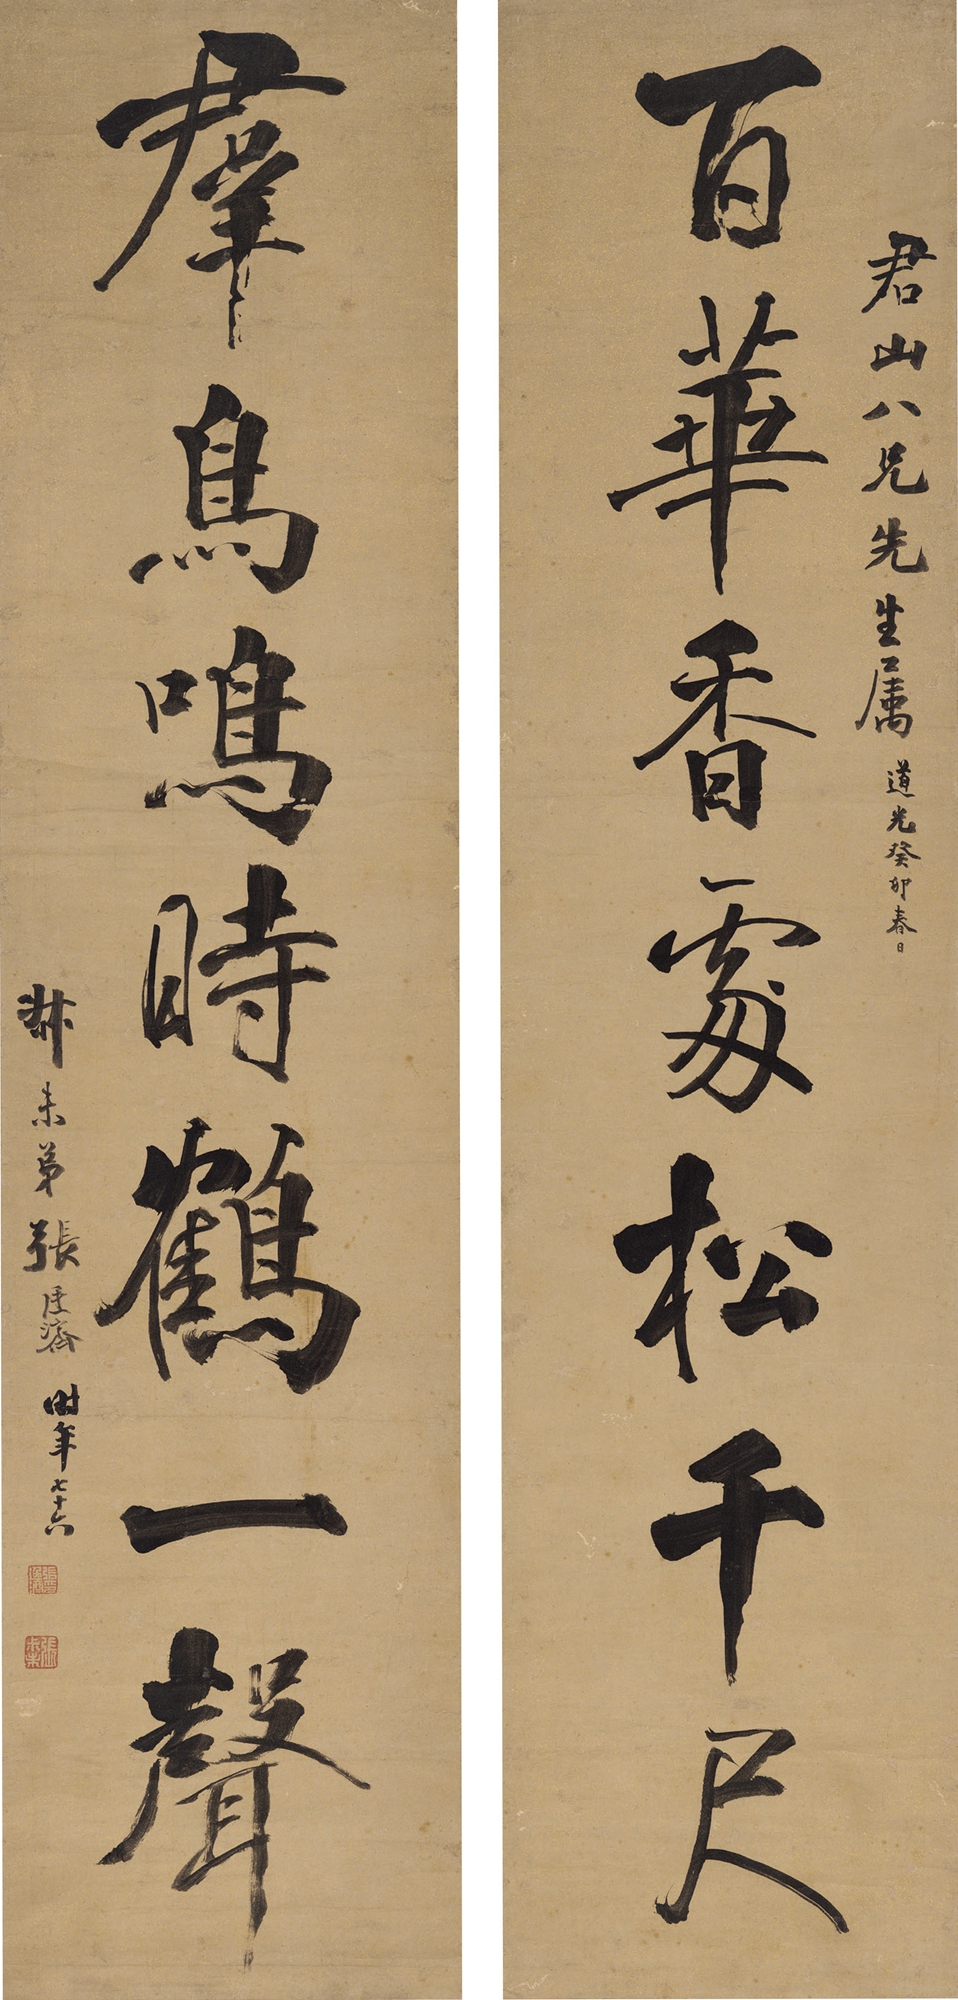 君山八兄先生属
道光癸卯春日
百華香處松千尺
羣鳥鳴時鶴一聲
叔未弟張廷濟
時年七十六